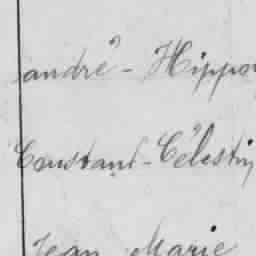 andré - Hippo
Constant - Célestin
Jean Marie